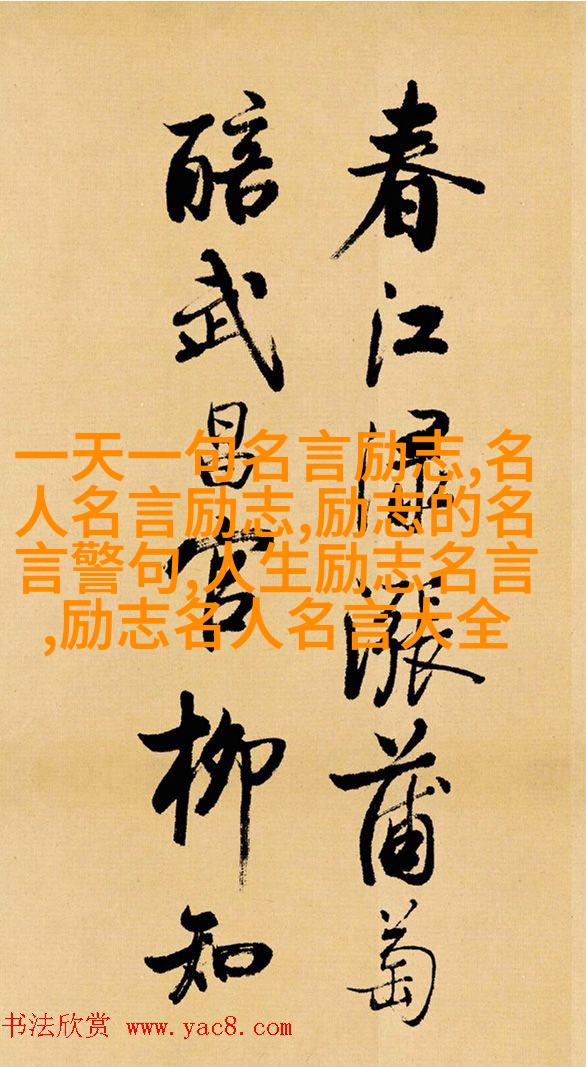 春江淥漲蒲萄
醅武昌官柳知
一天一句名言励志,名
人名言励志,励志的名
言警句,人生励志名言
,励志名人名言大全
书法欣赏 www.yac8.com